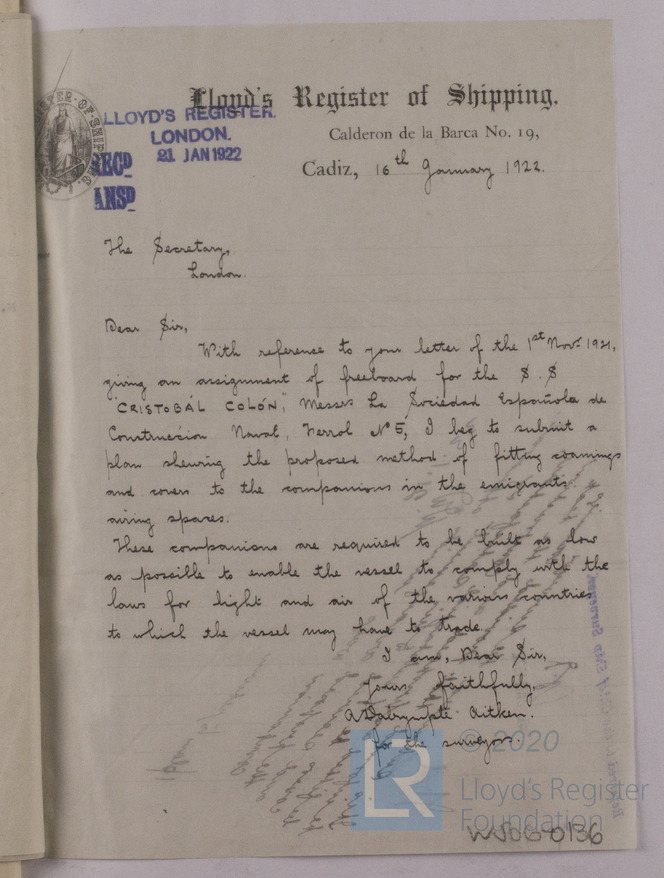 Lloyd's Register of Shipping.
LLOYD'S REGISTER.
LONDON.
21 JAN 1922
RECD
ANSD
Calderon de la Barca No. 19,
Cadiz, 16th January 1922.
The Secretary,
London.
Dear Sir,
With reference to your letter of the 1st Novr 1921,
giving an assignment of freeboard for the S.S
"CRISTOBAL COLÓN," Messrs La Sociedad Española de
Construccion Naval, Ferrol No 5, I beg to submit a
plan shewing the proposed method of fitting coamings
and covers to the companions in the emigrants
airing spaces.
These companions are required to be built as low
as possible to enable the vessel to comply with the
laws for light and air of the various countries
to which the vessel may have to trade.
I am, Dear Sir,
Yours faithfully,
A Dalrymple Aitken.
for the surveyor
© 2020
LR
Lloyd's Register
Foundation
W506-0136